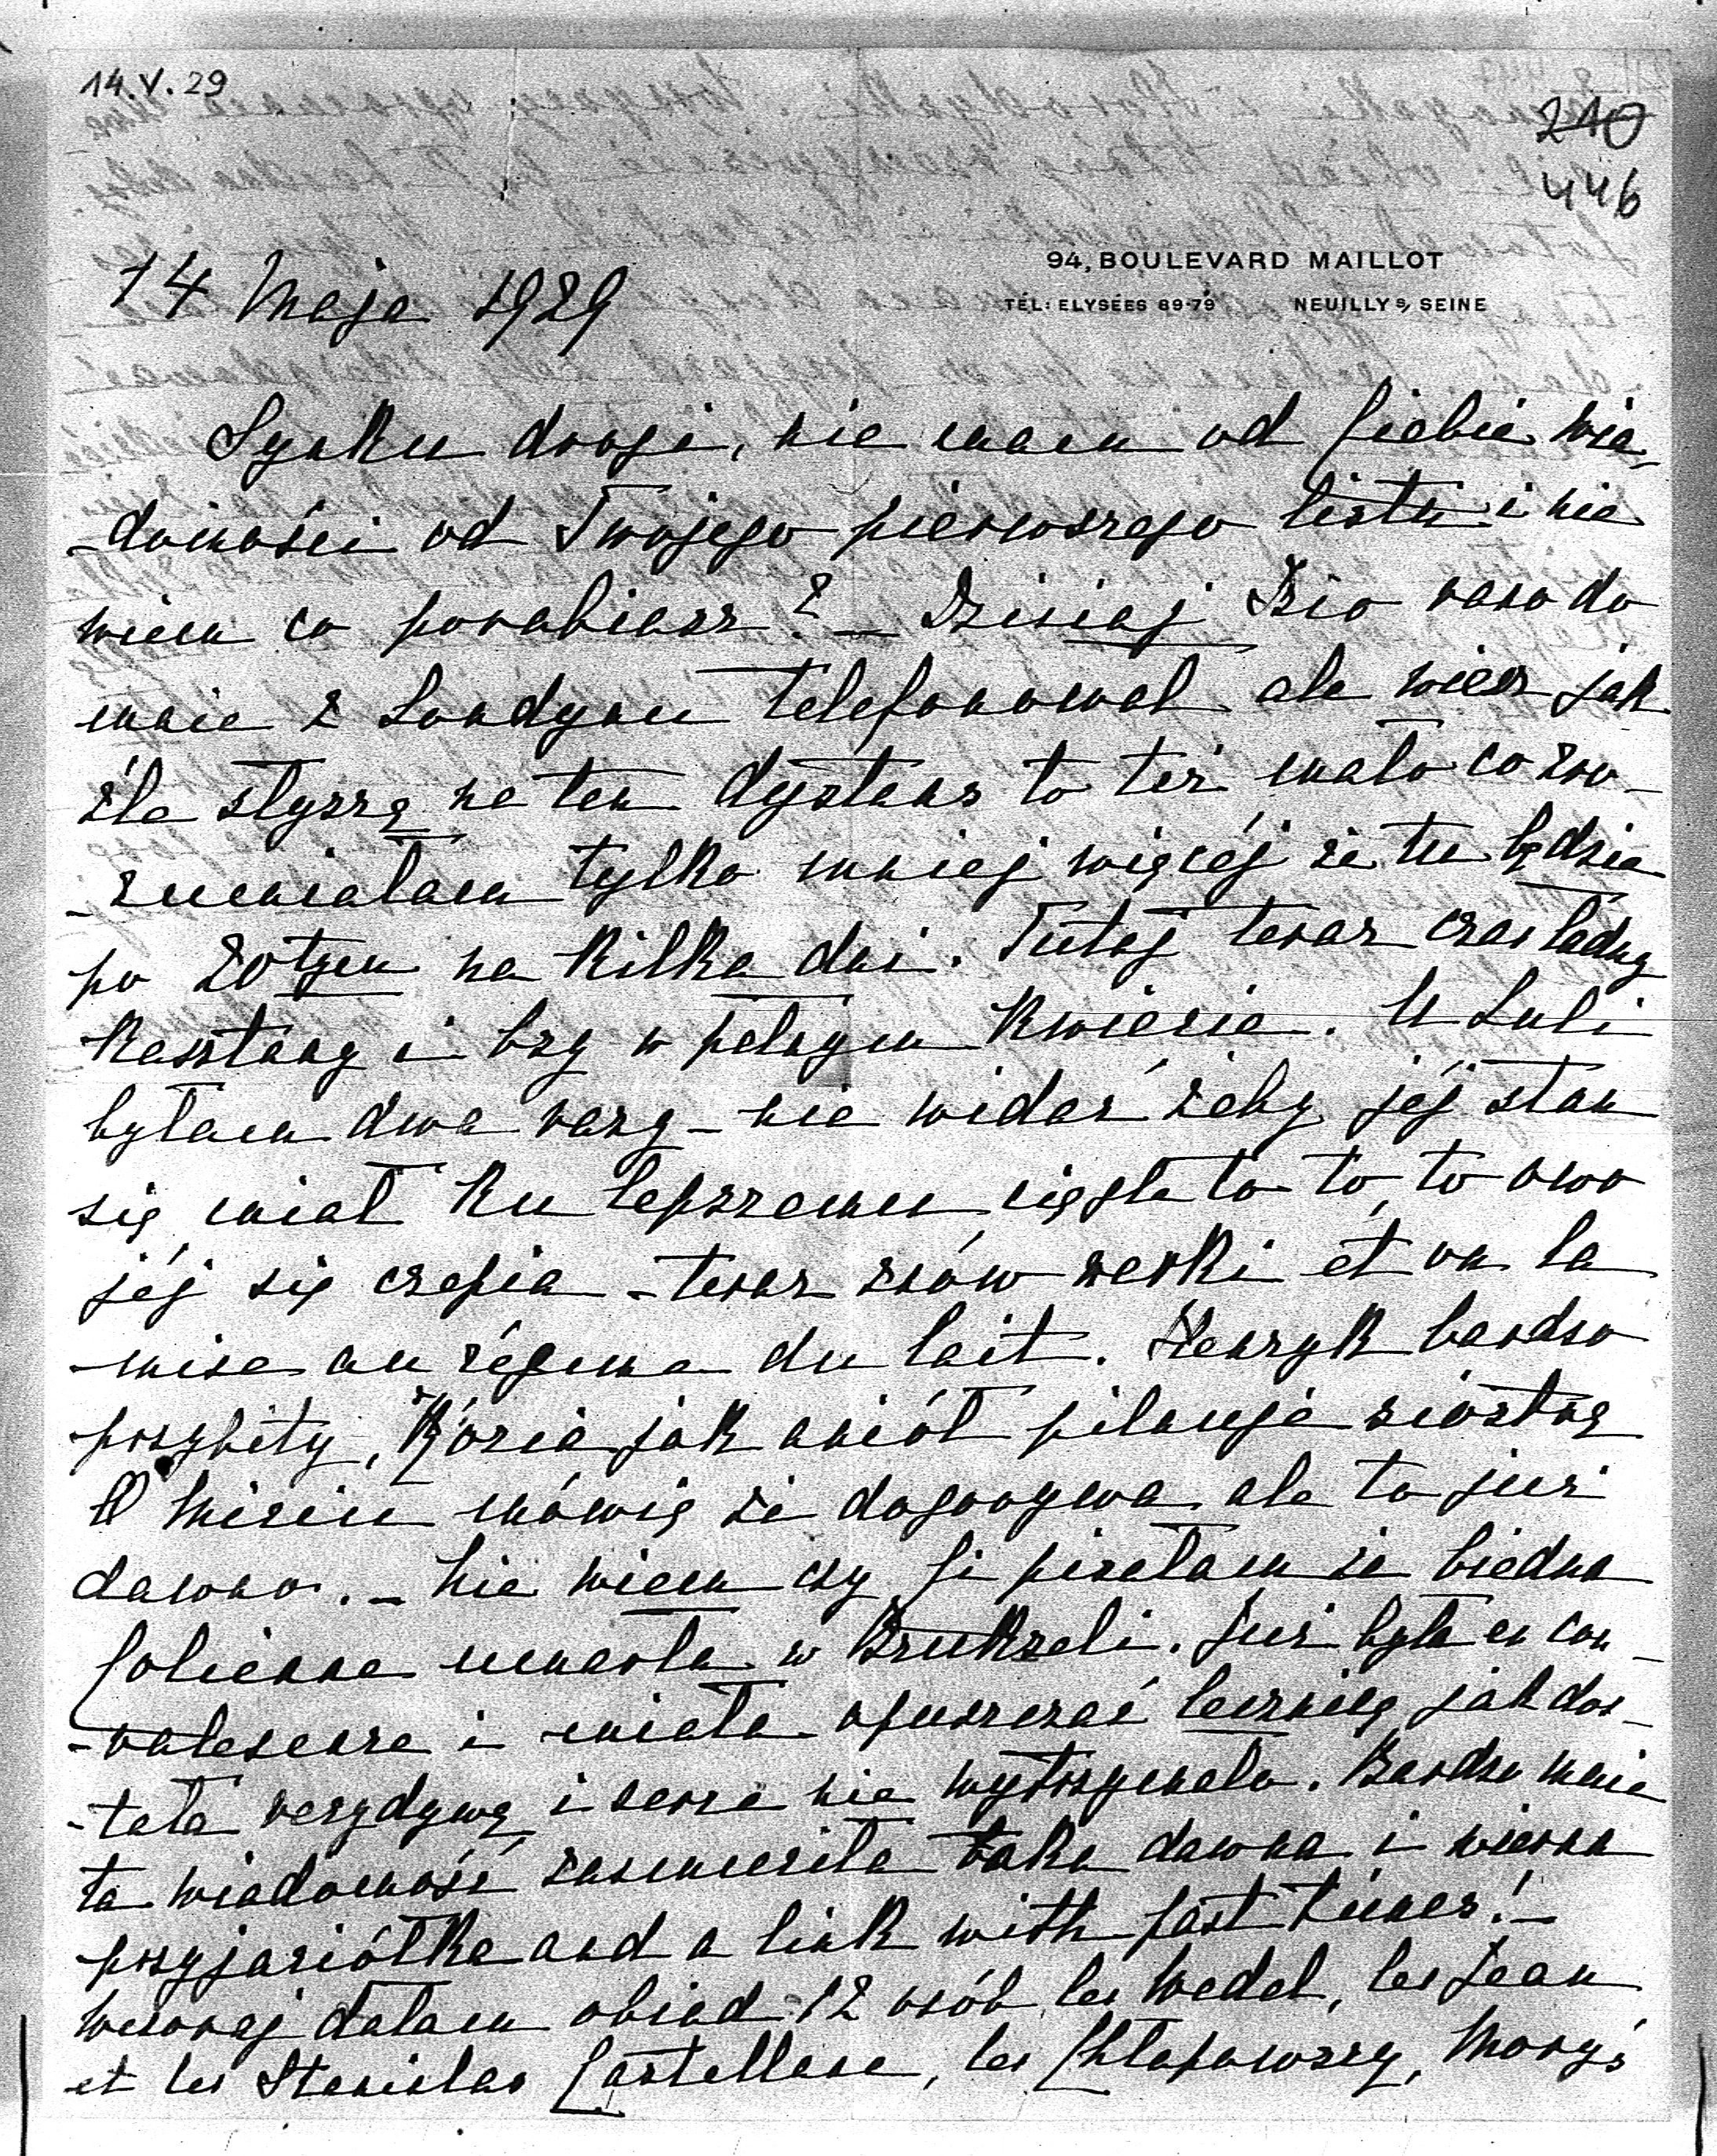 14.V.29
210
446
94, BOULEVARD MAILLOT
TÉL: ELYSÉES 89-79 NEUILLY S/ SEINE
14 Maja 1929
Synku drogi, nie mam od Ciebie wia-
-domości od Twojego pierwszego listu i nie
wiem co porabiasz? – Dzisiaj Dzio rano do
mnie z Londynu telefonował ale wiesz jak
źle słyszę na ten dystans to też mało co zro-
-zumiałam tylko mniej więcéj że tu będzie
po 20tym na kilka dni. Tutaj teraz czas ładny
Kasztany i bzy w pełnym kwiecie. U Luli
byłam dwa razy – nie widać żeby jéj stan
się miał ku lepszemu ciągle to to, to owo
jéj się czepia – teraz znów nerki et on la
mise au régime du lait. Henryk bardzo
przybity, Rózia jak aniół pilnuje siostrę
O Miziu mówią że dogorywa ale to już
dawno. – Nie wiem czy Ci pisałam że biedna
Solienne umarła w Brukseli. Już była en con-
-valescence i miała opuszczać lecznicę jak dos-
-tała recydywę i serce nie wytrzymało. Bardzo mnie
ta wiadomość zasmuciła taka dawna i wierna
przyjaciółka and a link with past times! –
Wczoraj dałam obiad 12 osób, les Wedel, les Jean
et les Stanislas Castellane, les Chłapowscy, Moryś